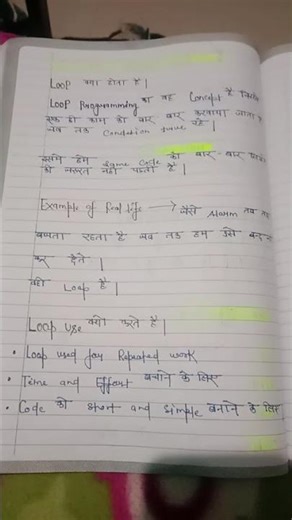 Loop क्या होता है |
Loop Programming का वह Concept है जिसमें
एक ही काम को बार बार करवाया जाता है
जब तक Condition true रहे |
यानि हमे Same Code को बार-बार
की जरूरत नही पड़ती है |
Example of Real life → जैसे Alarm तब तक
बजता रहता है जब तक हम उसे बन्द ना
कर देते |
वही Loop है |
Loop Use क्यो करते है |
• Loop used for Repeated work
• Time and Effort बचाने के लिए
• Code को short and simple बनाने के लिए